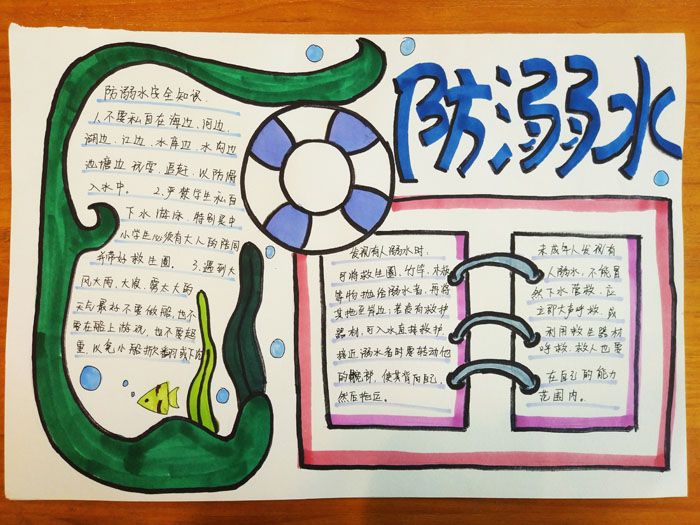 防溺水
防溺水安全知识
1.不要私自在海边、河边、
湖边、江边、水库边、水沟边
池塘边玩耍、追赶、以防滑
入水中。 2.严禁学生私自
下水游泳,特别是中
小学生必须有大人的陪同
并带好救生圈。 3.遇到大
风大雨、大浪、雾太大的
天气最好不要坐船,也不
要在船上游玩,也不要超
重,以免小船折翻或下沉
发现有人溺水时,
可将救生圈、竹竿、木板
等物抛给溺水者,再将
其拖至岸边;若没有救护
器材,可入水直接救护
接近溺水者时要转动他
的髋部,使其背向自己,
然后拖运。
未成年人发现有
人溺水,不能冒
然下水营救,应
立即大声呼救,或
利用救生器材
呼救,救人也要
在自己的能力
范围内。